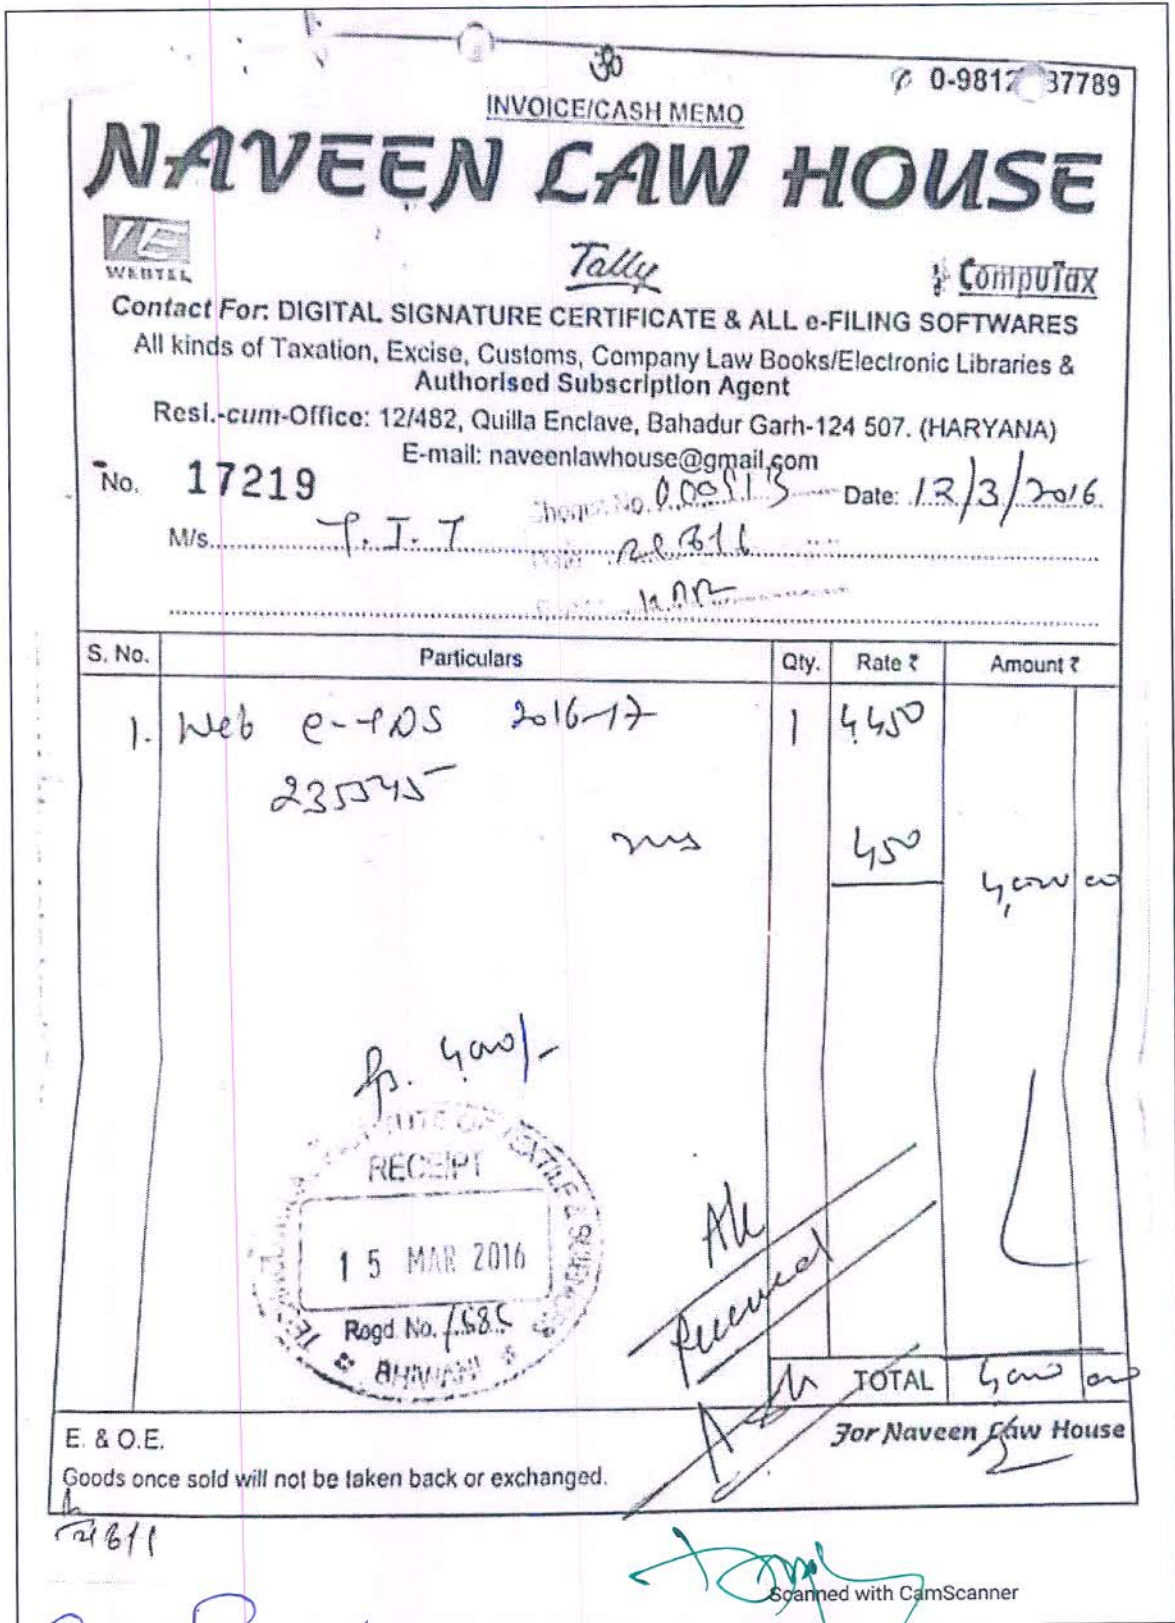 ॐ
0-9812 37789
INVOICE/CASH MEMO
NAVEEN LAW HOUSE
WEBTEL
Tally
CompuTax
Contact For: DIGITAL SIGNATURE CERTIFICATE & ALL e-FILING SOFTWARES
All kinds of Taxation, Excise, Customs, Company Law Books/Electronic Libraries &
Authorised Subscription Agent
Resi.-cum-Office: 12/482, Quilla Enclave, Bahadur Garh-124 507. (HARYANA)
E-mail: naveenlawhouse@gmail.com
No. 17219
Cheque No. 000513
Date: 12/3/2016
M/s. T.I.T
S. No. Particulars Qty. Rate ₹ Amount ₹
1. Web e-TDS 2016-17 1 4,450
235545
450
4,000 00
4,000/-
INSTITUTE OF TEXTILE & SCIENCES
RECEIPT
15 MAR 2016
Regd No. 1585
BHIWANI
Received
TOTAL 4,000 00
E. & O.E.
For Naveen Law House
Goods once sold will not be taken back or exchanged.
Scanned with CamScanner